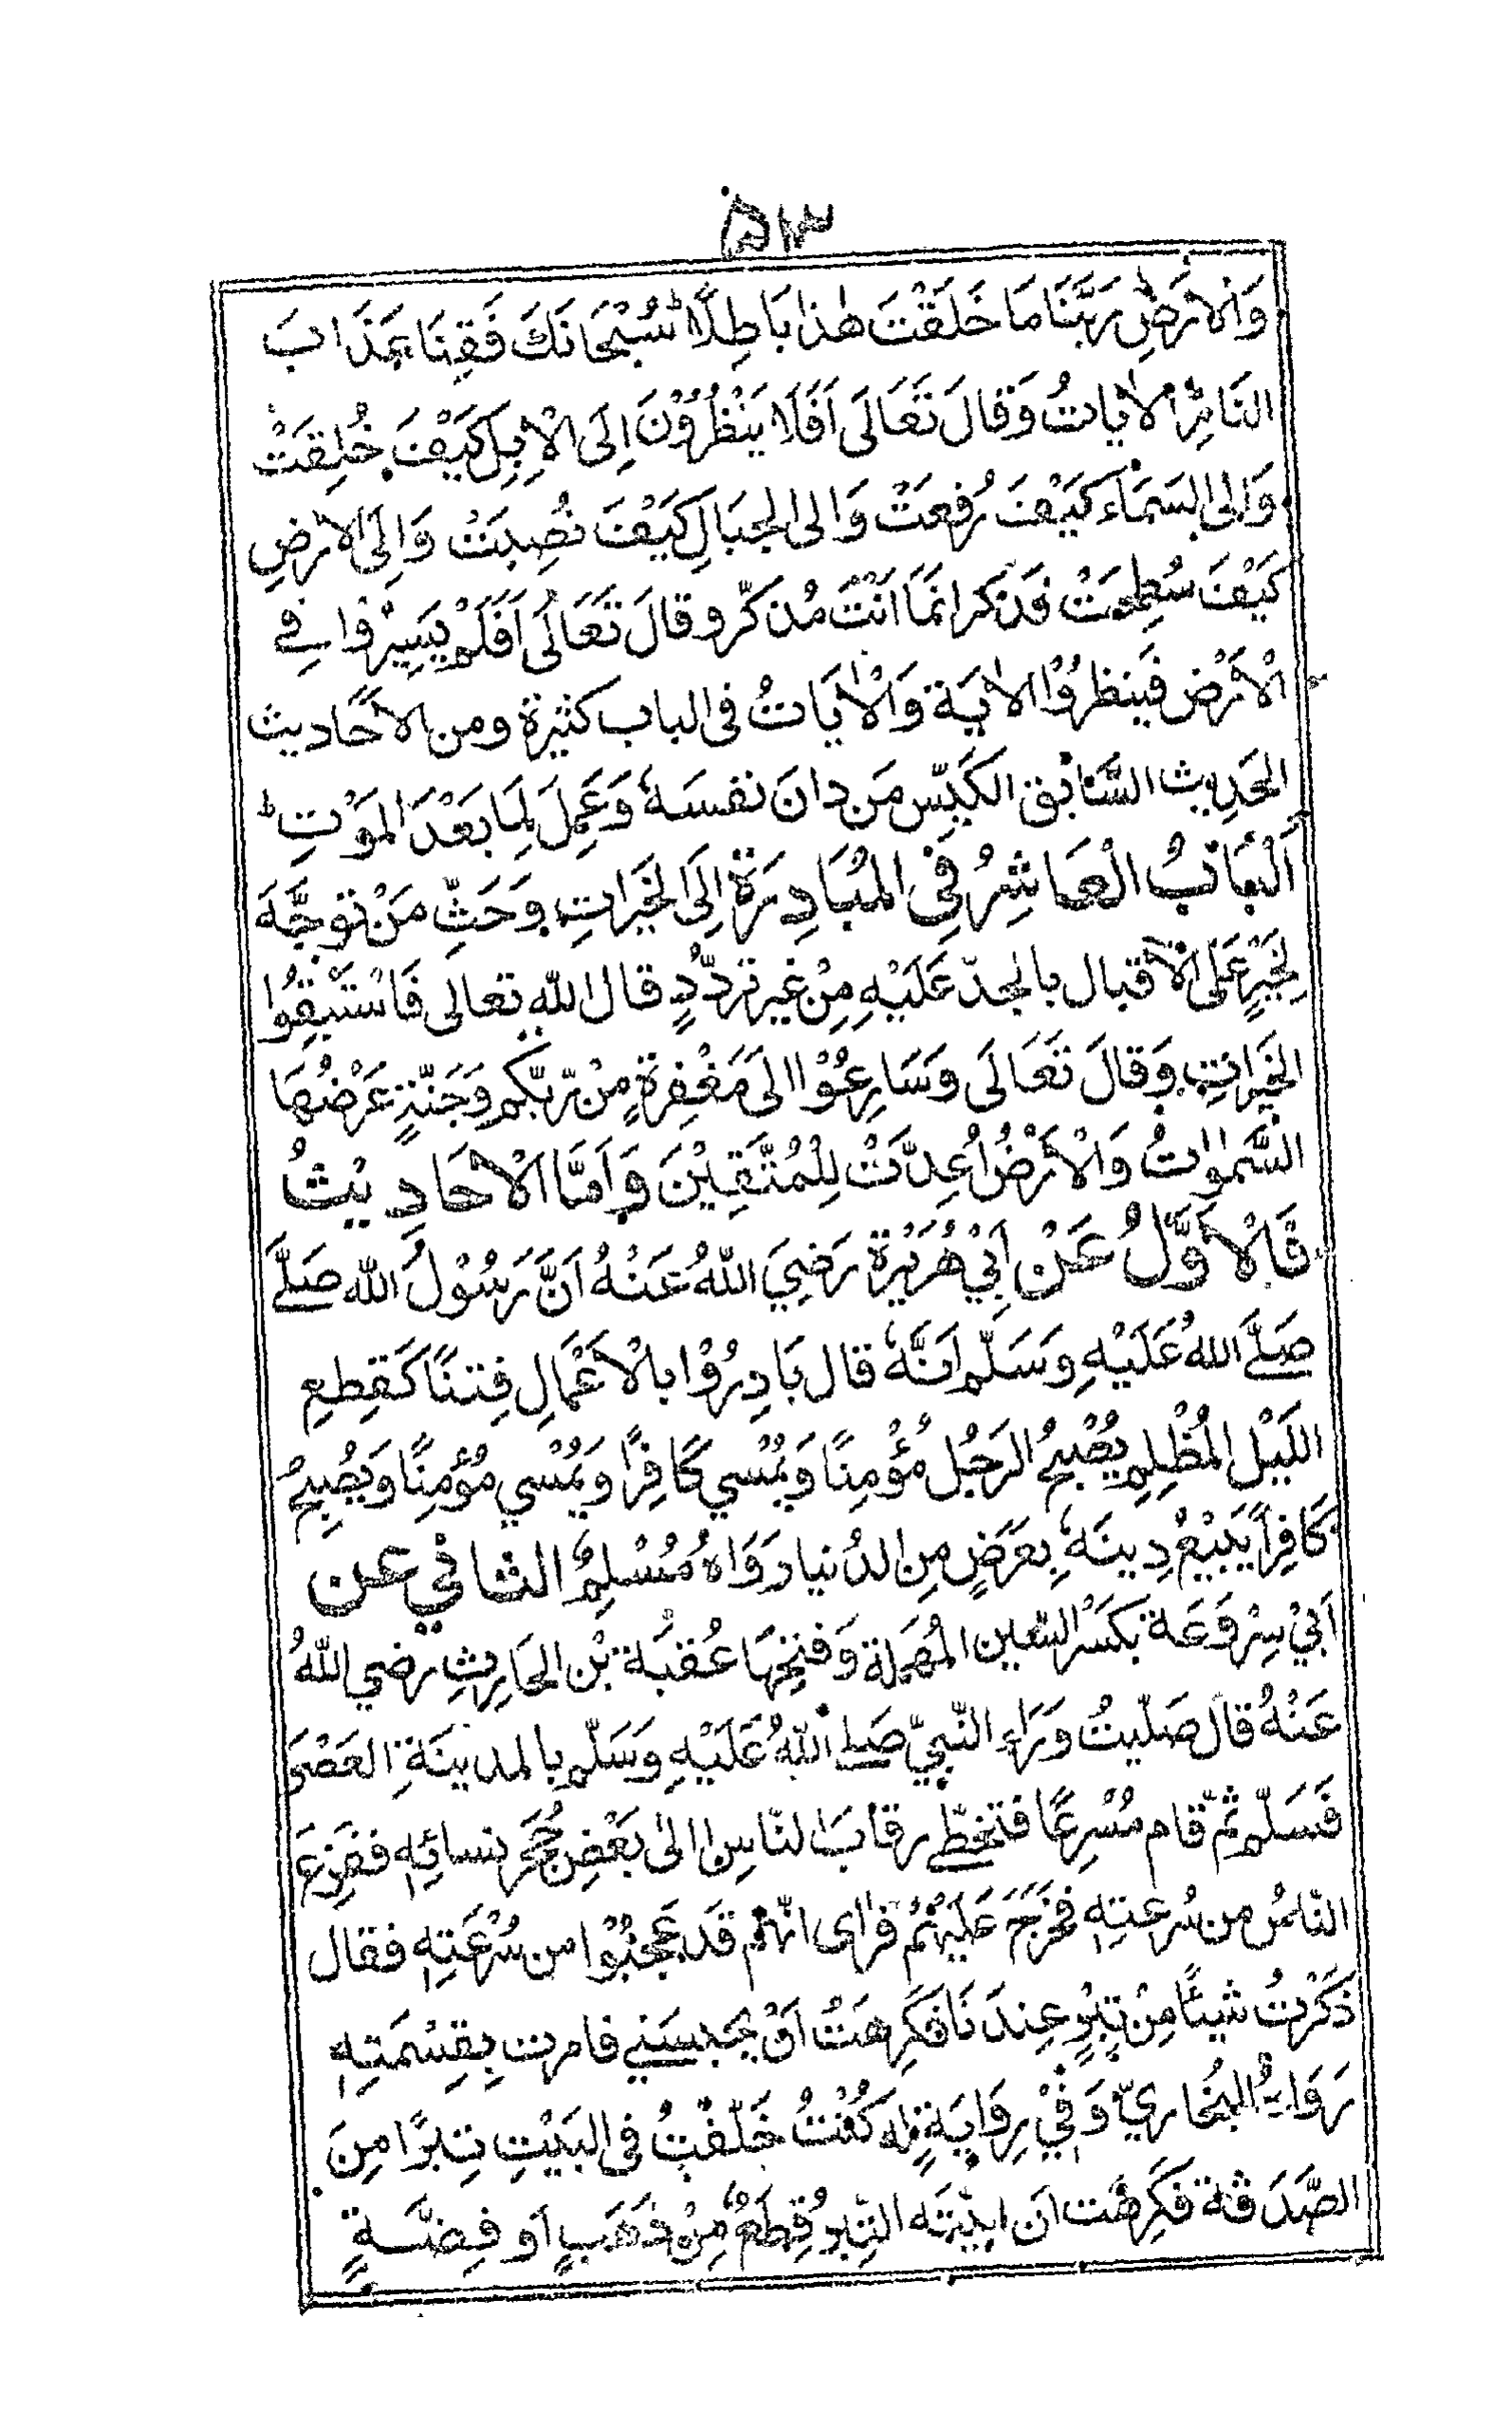 ۵۱۳
وَالْاَرْضِ رَبَّنَا مَا خَلَقْتَ هٰذَا بَاطِلًا سُبْحَانَكَ فَقِنَا عَذَابَ
النَّارِ الْاٰيَاتُ وَقَالَ تَعَالَى اَفَلَا يَنْظُرُوْنَ اِلَى الْاِبِلِ كَيْفَ خُلِقَتْ
وَاِلَى السَّمَاءِ كَيْفَ رُفِعَتْ وَاِلَى الْجِبَالِ كَيْفَ نُصِبَتْ وَاِلَى الْاَرْضِ
كَيْفَ سُطِحَتْ فَذَكِّرْ اِنَّمَا اَنْتَ مُذَكِّرٌ وقَالَ تَعَالَى اَفَلَمْ يَسِيْرُوْا فِي
الْاَرْضِ فَيَنظُرُوْا الْاٰيَة وَالْاٰيَاتُ فى الباب كثيرة ومن الاَحَاديث
الحَدِيث السَّابِق الكَيِّس مَن دانَ نفسَهٗ وَعَمِلَ لِمَا بَعْدَ الْمَوْتِ ط
اَلْبَابُ الْعَاشِرُ فِى الْمُبَادِرَةِ اِلَى الخَيرَاتِ وَحَثِّ مَنْ تَوَجَّهَ
لِخَيْرٍ عَلَى الْاِقبال بالجدّ عَلَيْهِ مِنْ غير تَردُّدٍ قال الله تعالى فَاسْتَبِقُوا
الخَيْرَاتِ وَقَالَ تَعَالَى وَسَارِعُوْا الى مَغْفِرةٍ مِنْ رّبّكم وَجَنَّةٍ عَرْضُهَا
السَّمٰوٰاتُ وَالْاَرْضُ اُعِدَّتْ لِلْمُتَّقِيْنَ وَاَمَّا الْاَحَادِيْثُ
فَالْاَوَّلُ عَنْ اَبِيْ هُرَيْرَة رَضِيَ اللهُ عَنْهُ اَنَّ رَسُوْلَ الله صَلَّے
صَلَّے اللهُ عَلَيْهِ وَسَلّم اَنَّهٗ قال بَادِرُوْا بالْاَعْمَالِ فِتنًا كَقِطعِ
اللَيْل المُظْلِم يُصْبِحُ الرَجُل مُؤْمِنًا وَيُمْسي كَافِرًا وَيُمْسي مُؤْمِنًا وَيُصْبِحُ
كَافِرًا يَبِيْعُ دِينَهٗ بِعَرَضٍ مِن الدُنيا رَوَاهُ مُسْلِمٌ الثاني عن
اَبِيْ سِرْوَعَة بكَسْر السّين المُهمَلة وَفَتحِهَا عُقبَة بْن الحَارِثِ رضي اللهُ
عَنْهُ قال صَلّيتُ وَرَاء النّبيّ صَلے اللهُ عَلَيْهِ وَسَلّم بالمدينَةِ العَصْرَ
فَسَلّم ثمّ قام مُسْرِعًا فتخَطّے رقابَ النّاس الىٰ بَعْضِ حُجَر نسائِه ففَزِعَ
النّاسُ من سُرعتِهٖ فخَرَجَ عَلَيْهُمْ فراى انّهُم قَد عَجِبُوْا من سُرْعَتِهٖ فقال
ذَكَرْتُ شيئًا مِنْ تِبْرٍ عِندَنَا فكَرِهتُ اَنْ يحبسَني فامرت بِقِسْمَتِهٖ
رَوَاهُ البُخاريّ وَفِيْ رِوَايَةٍ له كُنْتُ خَلّفتُ فى البَيْتِ تِبرًا مِنَ
الصَّدَقة فكَرِهْت اَن ابيّتَه التِّبرُ قِطَعٌ مِنْ ذَهَبٍ اَو فِضَّةٍ